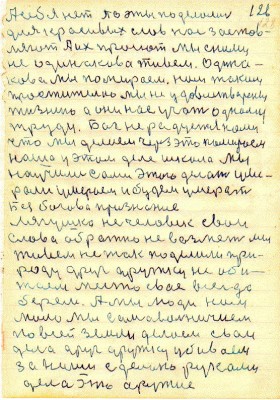 122
А себя нет поэты поделали
для красивых слов нас застав
ляют А их просют мы с ними
не одинаково живем. Одина
кова мы помираем, нам таким
простительно мы не удовлетворены
жизнию а они нас учат одному
труду. Бог не радуется нами
что мы делаем через это помираем
наша у этом деле школа мы
научили сами этого делать уми
рали умираем и будем умирать
Без Богова признание
лягушко не человек свои
слова обратно не возмет мы
живем не так поделили при
роду друг дружку не оби
жаем место свое всегда
берем. А мы люди нам
мало мы самовольничаем
по всей земли делаем свои
дела друг дружку убиваем
за ними сделано руками
дела это оружие